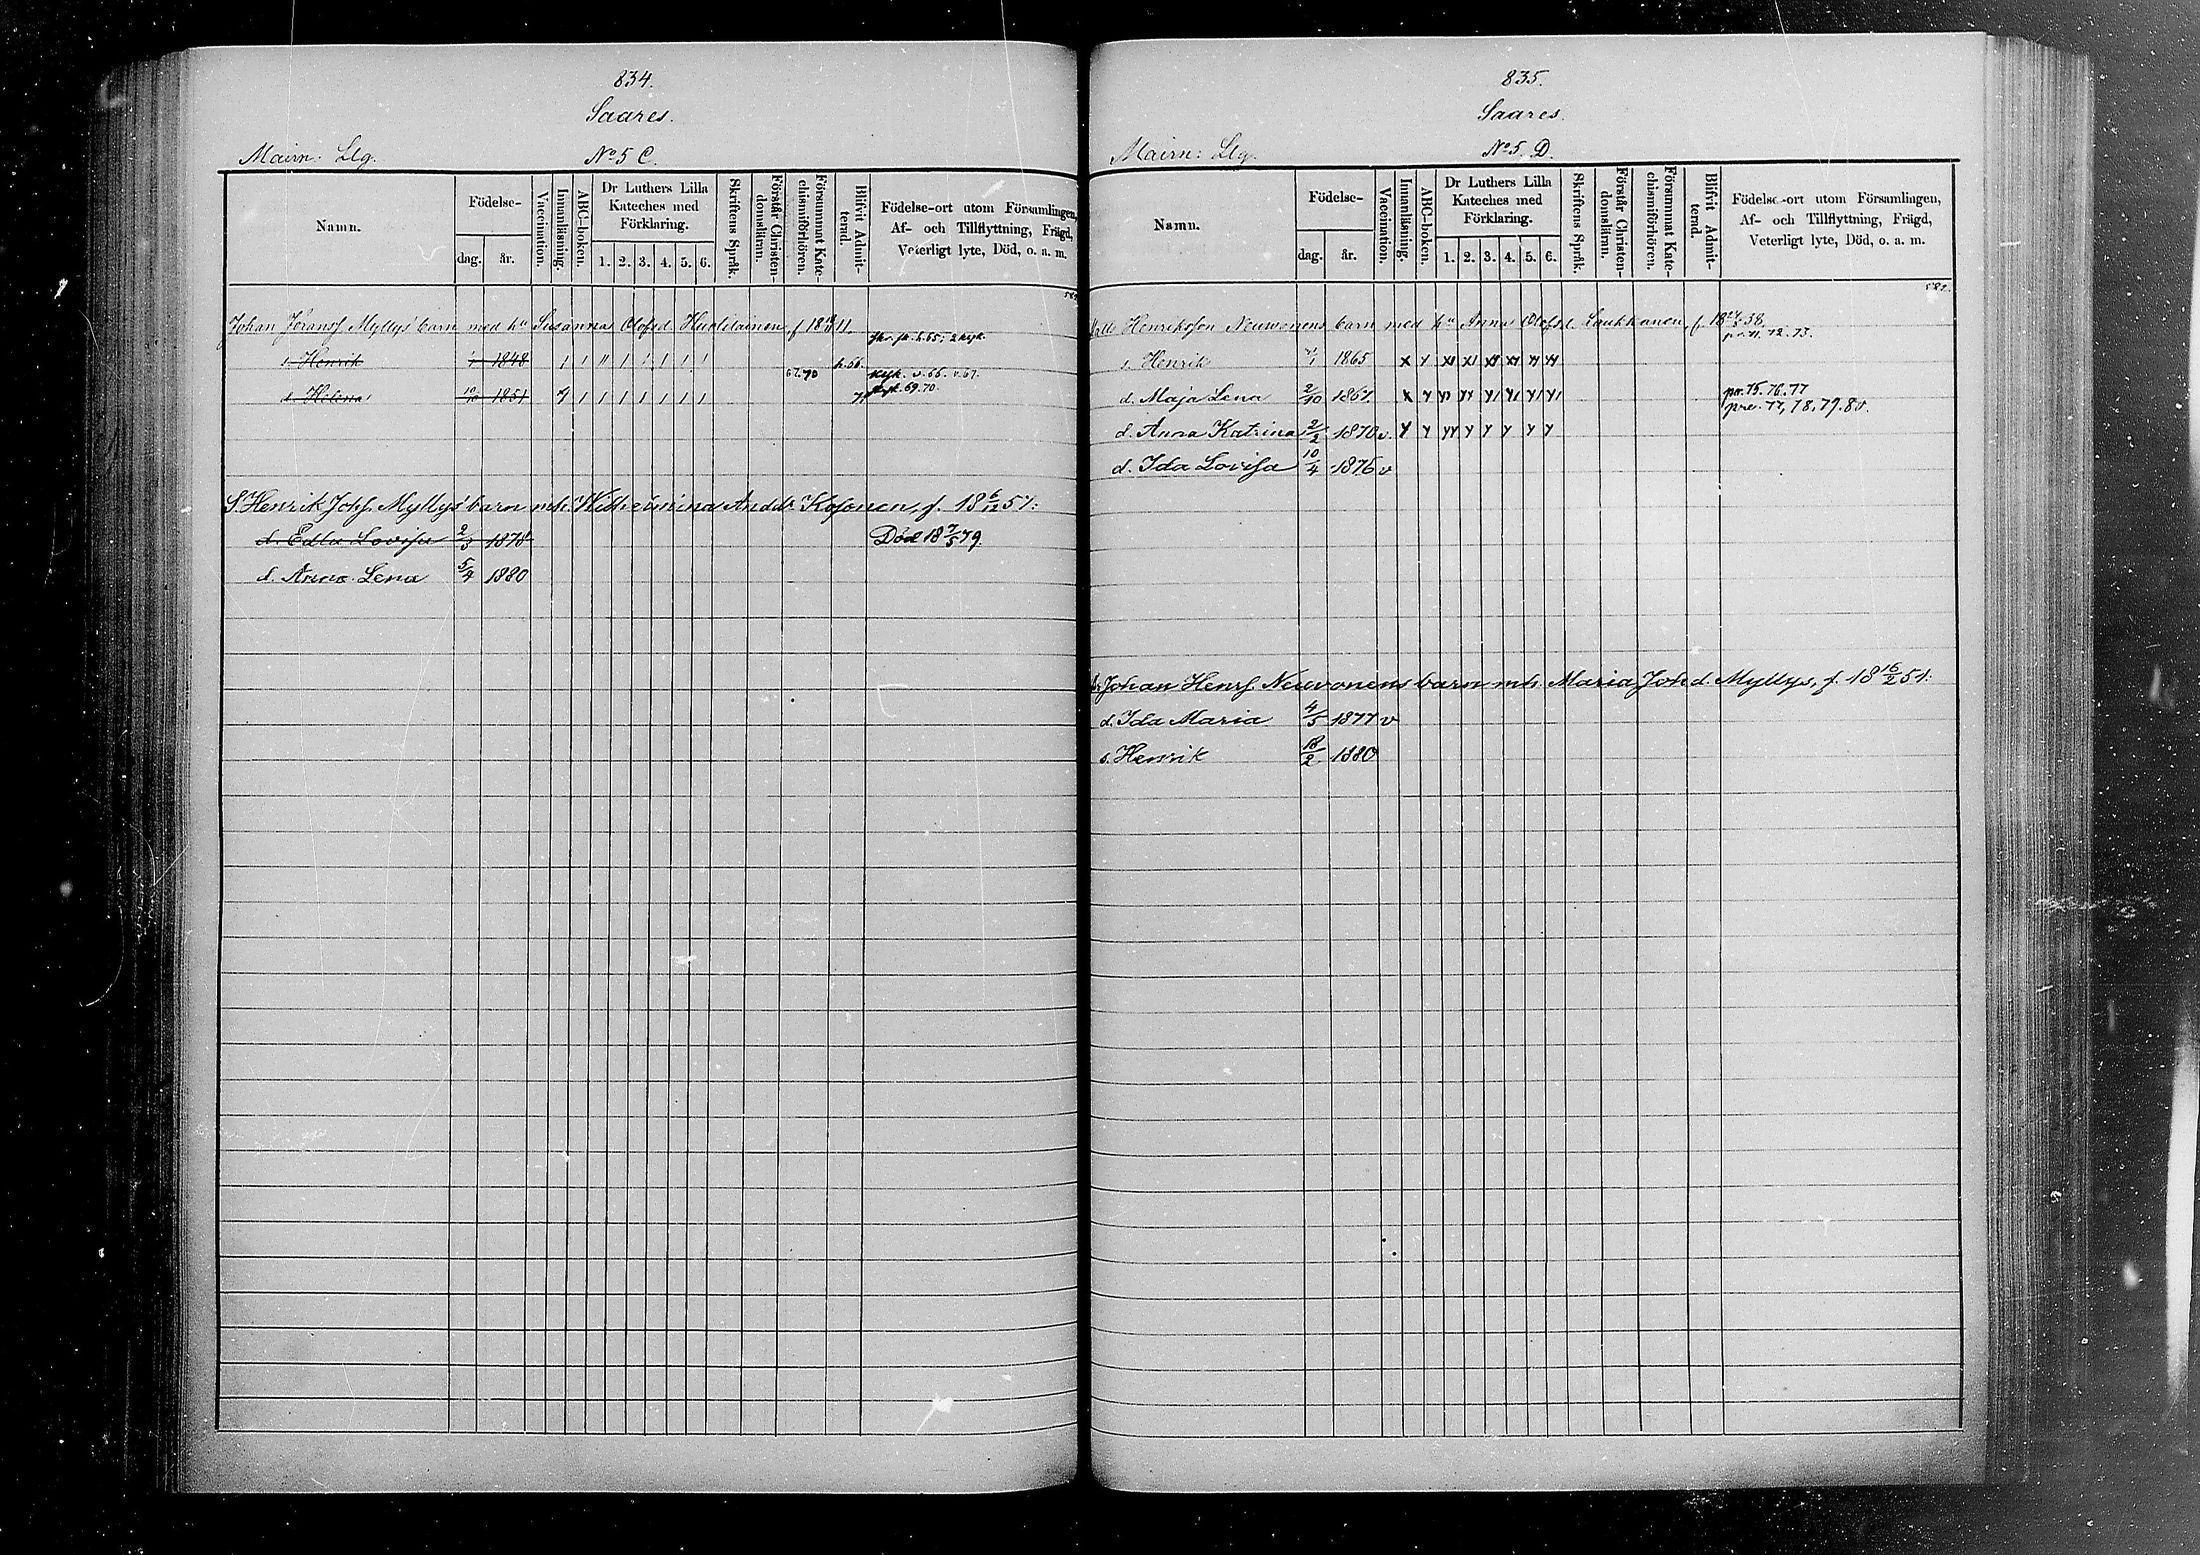 834.
Saares.
Mairn: Llg. No 5 C.
Namn. Födelse- dag. år. Vaccination. Innanläsning. ABC-boken. Dr Luthers Lilla Kateches med Förklaring. 1. 2. 3. 4. 5. 6. Skriftens Språk. Förstår Christendomsläran. Försummat Katechismiförhören. Blifvit Admitterad. Födelse-ort utom Församlingen, Af- och Tillflyttning, Frägd, Veterligt lyte, Död, o. a. m.
Johan Göransf Myllys' barn med hu Susanna Olofsd. Huolilainen, f 18 11.
s. Henrik 1848 h. 66.
d. Helena 10/10 1851 67.70 71 69.70.
S. Henrik Johs. Myllys' barn m h. Wilhelmina And.dr Kosonen, f. 18 6/12 57:
d. Edla Lovisa 2/3 1878 Död 18 7/5 79.
d. Anna Lena 5/4 1880
835.
Saares.
Mairn: Llg. No 5. D.
Namn. Födelse- dag. år. Vaccination. Innanläsning. ABC-boken. Dr Luthers Lilla Kateches med Förklaring. 1. 2. 3. 4. 5. 6. Skriftens Språk. Förstår Christendomsläran. Försummat Katechismiförhören. Blifvit Admitterad. Födelse-ort utom Församlingen, Af- och Tillflyttning, Frägd, Veterligt lyte, Död, o. a. m.
582.
Henriksson Neuwonens barn med hu Anna Olofsd. Laukkanen, f. 18 38.
pr. 71. 72. 73.
s. Henrik 1865
d. Maja Lena 2/10 1867. pr. 75. 76. 77
pre. 77, 78, 79. 80.
d. Anna Katrina 2/2 1870 v.
d. Ida Lovisa 10/4 1876 v
Johan Henrs. Neuvonens barn m h. Maria Joh d. Myllys, f. 18 16/2 51:
d. Ida Maria 4/5 1877 v
s. Henrik 18/2 1880